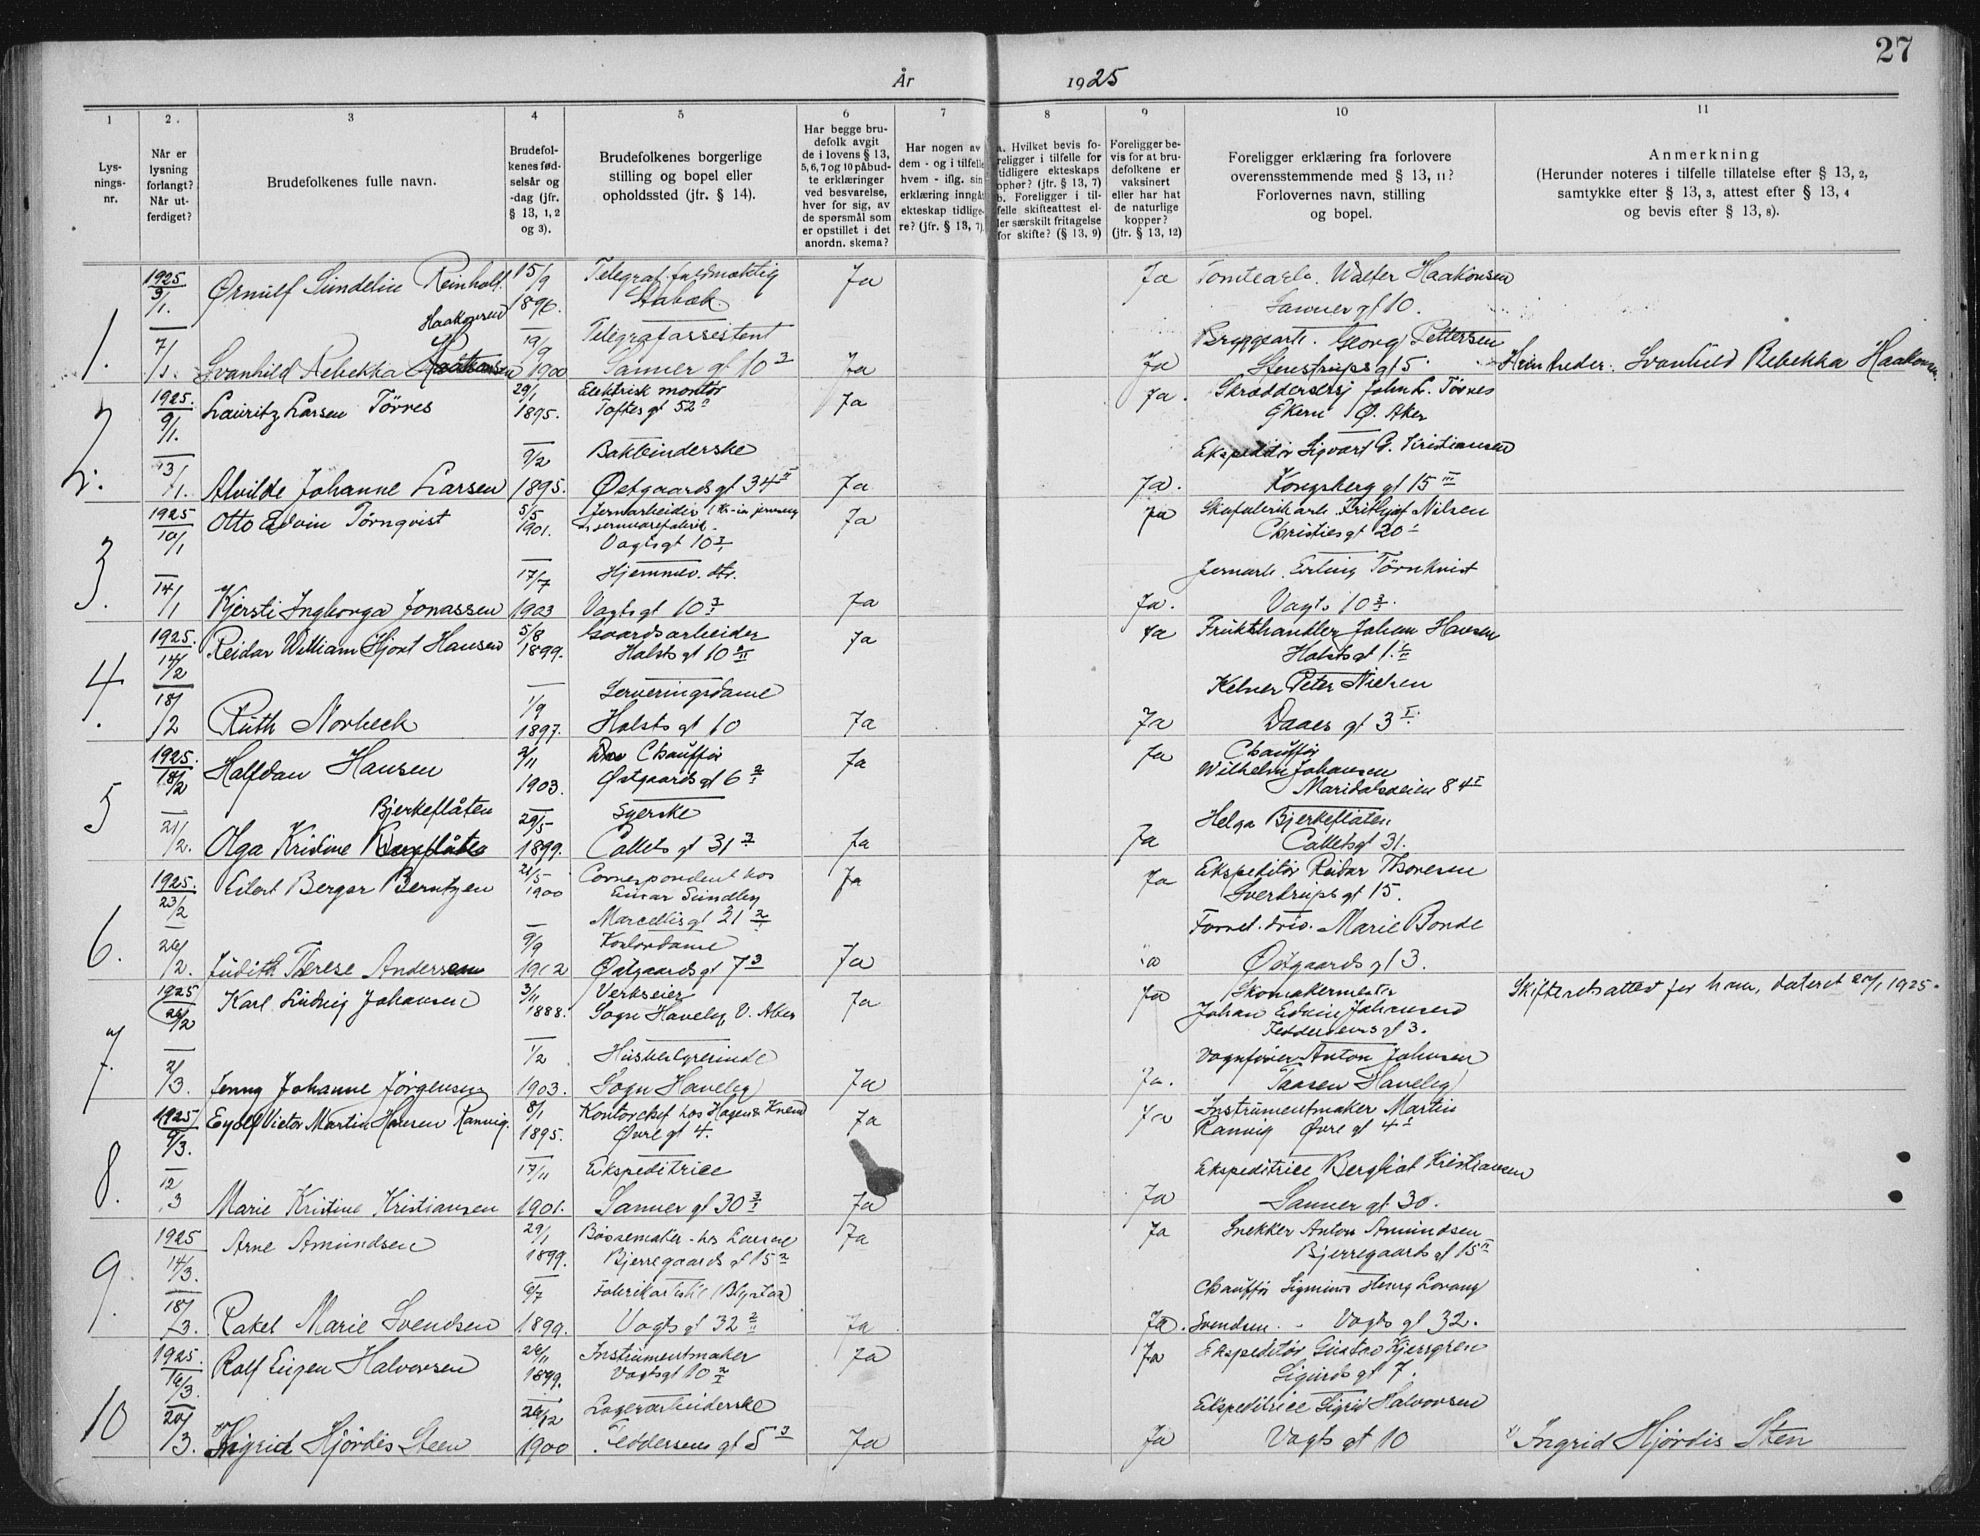 27
År 1925
1
2.
3
4
5
6
7
8
9
10
11
Lys-
nings-
nr.
Når er
lysning
forlangt?
Når ut-
ferdiget?
Brudefolkenes fulle navn.
Brudefol-
kenes fød-
selsår og
-dag (jfr.
§ 13, 1, 2
og 3).
Brudefolkenes borgerlige
stilling og bopel eller
opholdssted (jfr. § 14).
Har begge bru-
defolk avgit
de i lovens § 13,
5, 6, 7 og 10 påbud-
te erklæringer
ved besvarelse,
hver for sig, av
de spørsmål som
er opstillet i det
anordn. skema?
Har nogen av
dem - og i tilfelle
hvem - iflg. sin
erklæring inngåt
ekteskap tidlige-
re? (jfr. § 13, 7)
a. Hvilket bevis fo-
religger i tilfelle for
tidligere ekteskaps
ophør? (jfr. § 13, 7)
b. Foreligger i til-
felle skifteattest el-
ler særskilt fritagelse
for skifte? (§ 13, 9)
Foreligger be-
vis for at bru-
defolkene er
vaksinert
eller har hat
de naturlige
kopper?
(jfr. § 13, 12)
Foreligger erklæring fra forlovere
overensstemmende med § 13, 11?
Forlovernes navn, stilling
og bopel.
Anmerkning
(Herunder noteres i tilfelle tillatelse efter § 13, 2,
samtykke efter § 13, 3, attest efter § 13, 4
og bevis efter § 13, 8).
1.
1925 Ørnulf Sundelin Reinholt 15/9 Telegraf.fuldmæktig Ja Ja Walter Haakonsen
3/1. Haakonsen 1896. Stabæk. Sanner gt 10.
7/1. 19/9 Telegrafassistent Bryggearb. Georg Pettersen
Svanhild Rebekka 1900 Sanner gt 10 3 Ja Ja Stenstrups gt 5. Svanhild Rebekka Haakonsen
2.
1925. Lauritz Larsen Tørres 29/1 Elektrisk montør Ja Ja. John L. Tørres
9/1. 1895. Toftes gt 52 Ø. Aker
13/1. 9/2 Bokbinderske Ekspeditør Sigvart G. Kristiansen
Alvilde Johanne Larsen 1895. Østgaards gt 34 II Ja Ja. Kongsberg gt 15 III
3.
1925 Otto Edvin Törnqvist 5/5 Jernarbeider Ja Ja Fritjof Nilsen
10/1 1901. Vogts gt 10 Christies gt 20
14/1 17/7 Hjemmev. dtr. Jernarb. Erling Törnkvist
Kjersti Ingborga Jonassen 1903 Vogts gt 10 Ja Ja. Vogts 10
4.
1925. Reidar William Hjort Hansen 5/8 Gaardsarbeider Ja Ja Frukthandler Johan Hansen
14/2 1899. Holsts gt 10 Holsts gt 1.
18/2 1/9 Serveringsdame Kelner Peter Nielsen
Ruth Norbeck 1897. Holsts gt 10 Ja Ja Daaes gt 3 I.
5
1925. Halfdan Hansen 2/11 Chauffør Ja Ja Chauffør
18/2 1903. Østgaards gt 6 Wilhelm Johansen
Maridalsveien 84 I
Bjerkeflåten 29/5 Syerske Helga Bjerkeflåten
21/2. Olga Kristine 1899. Collets gt 31 3 Ja Ja Collets gt 31.
6.
1925. Eilert Berger Berntzen 21/5 Correspondent hos Ja Ja Ekspeditør Reidar Thoresen
23/2 1900 Einar Sundby Sverdrups gt 15.
Marcellis gt 21 Marie Bonde
26/2. 9/9 Kontordame
Judith Therese Andersen 1902 Østgaards gt 7 3 Ja Østgaards gt 3.
7.
1925 Karl Ludvig Johansen 3/11 Verkseier Ja Ja Skomakermester Skifteretsattest for ham, dateret 20/1 1925.
26/2 1888. Sogn Haveby, V. Aker Johan Edvin Johansen
Feddersens gt 3.
2/3. 1/2 Husbestyrerinde Vognfører Anton Johnsen
Jenny Johanne Jørgensen 1903. Sogn Haveby Ja Ja. Taasen Haveby
8.
1925 Eyolf Victor Martin Hansen Rannvig. 8/1 Kontorchef hos Ja Ja Instrumentmaker Martin
9/3. 1895. Øvre gt 4. Rannvig Øvre gt 4
12/3 17/11 Ekspeditrice Ekspeditrice Bergliot Kristiansen
Marie Kristine Kristiansen 1901. Sanner gt 30 Ja Ja Sanner gt 30.
9.
1925 Arne Amundsen 29/1 Børsemaker Ja Ja Snekker Anton Amundsen
14/3. 1899. Bjerregaards gt 15 2 Bjerregaards gt 15 II
18/3. 6/7 Chauffør Sigmund Henry Lorang
Rakel Marie Svendsen 1899. Vogts gt 32 Ja Ja. Svendsen. - Vogts gt 32.
10
1925. Rolf Eugen Halvorsen 26/11 Instrumentmaker Ja Ja Ekspeditør Gustav
16/3. 1899. Vogts gt 10 Sigurds gt 7.
20/3. 26/12 Lagerarbeiderske Ekspeditrice Sigrid Halvorsen
Ingrid Hjördis Steen 1900 Feddersens gt 5 3 Ja Ja Vogts gt 10 Ingrid Hjördis Sten